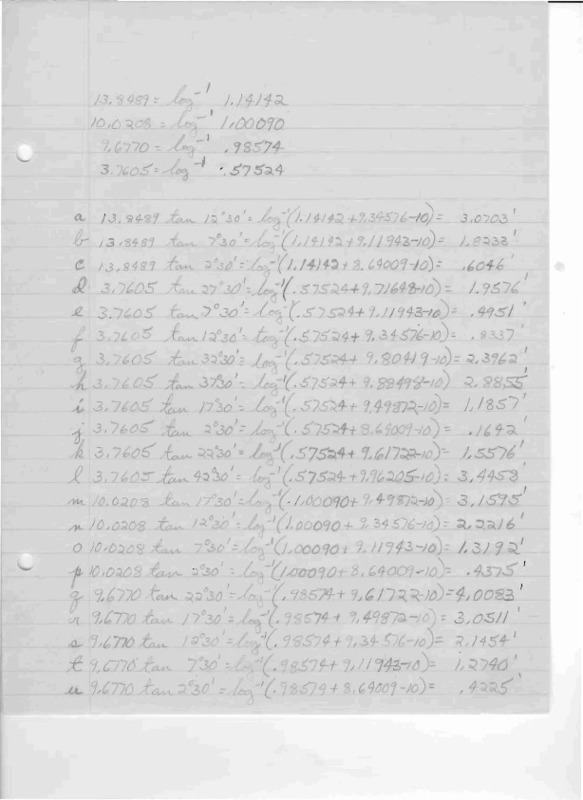 13.8489 = log⁻¹ 1.14142
10.0208 = log⁻¹ 1.00090
9.6770 = log⁻¹ .98574
3.7605 = log⁻¹ .57524
a 13.8489 tan 12°30' = log⁻¹(1.14142 + 9.34576-10) = 3.0703'
b 13.8489 tan 7°30' = log⁻¹(1.14142 + 9.11943-10) = 1.8233'
c 13.8489 tan 2°30' = log⁻¹(1.14142 + 8.64009-10) = .6046'
d 3.7605 tan 27°30' = log⁻¹(.57524 + 9.71648-10) = 1.9576'
e 3.7605 tan 7°30' = log⁻¹(.57524 + 9.11943-10) = .4951'
f 3.7605 tan 12°30' = log⁻¹(.57524 + 9.34576-10) = .8337'
g 3.7605 tan 32°30' = log⁻¹(.57524 + 9.80419-10) = 2.3962'
h 3.7605 tan 37°30' = log⁻¹(.57524 + 9.88498-10) 2.8855'
i 3.7605 tan 17°30' = log⁻¹(.57524 + 9.49872-10) = 1.1857'
j 3.7605 tan 2°30' = log⁻¹(.57524 + 8.64009-10) = .1642'
k 3.7605 tan 22°30' = log⁻¹(.57524 + 9.61722-10) = 1.5576'
l 3.7605 tan 42°30' = log⁻¹(.57524 + 9.96205-10) = 3.4458'
m 10.0208 tan 17°30' = log⁻¹(1.00090 + 9.49872-10) = 3.1595'
n 10.0208 tan 12°30' = log⁻¹(1.00090 + 9.34576-10) = 2.2216'
o 10.0208 tan 7°30' = log⁻¹(1.00090 + 9.11943-10) = 1.3192'
p 10.0208 tan 2°30' = log⁻¹(1.00090 + 8.64009-10) = .4375'
q 9.6770 tan 22°30' = log⁻¹(.98574 + 9.61722-10) = 4.0083'
r 9.6770 tan 17°30' = log⁻¹(.98574 + 9.49872-10) = 3.0511'
s 9.6770 tan 12°30' = log⁻¹(.98574 + 9.34576-10) = 2.1454'
t 9.6770 tan 7°30' = log⁻¹(.98574 + 9.11943-10) = 1.2740'
u 9.6770 tan 2°30' = log⁻¹(.98574 + 8.64009-10) = .4225'